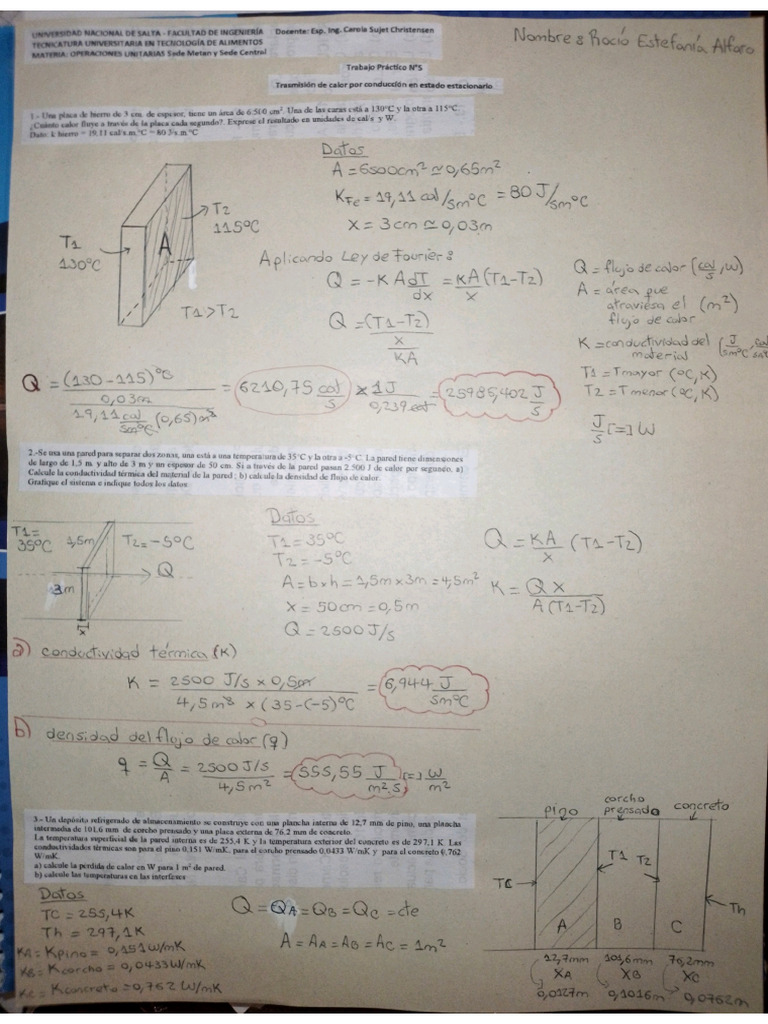 UNIVERSIDAD NACIONAL DE SALTA - FACULTAD DE INGENIERÍA Docente: Esp. Ing. Carola Sujet Christensen
TECNICATURA UNIVERSITARIA EN TECNOLOGÍA DE ALIMENTOS
MATERIA: OPERACIONES UNITARIAS Sede Metan y Sede Central
Nombre: Rocío Estefanía Alfaro
Trabajo Práctico N°5
Trasmisión de calor por conducción en estado estacionario
1.- Una placa de hierro de 3 cm. de espesor, tiene un área de 6.500 cm². Una de las caras está a 130°C y la otra a 115°C.
¿Cuánto calor fluye a través de la placa cada segundo?. Exprese el resultado en unidades de cal/s y W.
Dato: k hierro = 19,11 cal/s.m.°C = 80 J/s.m.°C
Datos
A = 6500cm² ≃ 0,65m²
KFe = 19,11 cal/sm°C = 80 J/sm°C
x = 3cm ≃ 0,03m
T2
115°C
T1
130°C
A
T1>T2
Aplicando Ley de Fourier:
Q = -K A dT/dx = KA/x (T1-T2)
Q = (T1-T2) / (x/KA)
Q = flujo de calor (cal/s, W)
A = área que
atraviesa el (m²)
flujo de calor
K = conductividad del (J/sm°C, cal/
material
T1 = Tmayor (°C, K)
T2 = Tmenor (°C, K)
J/s [=] W
Q = (130-115)°C / (0,03m / 19,11 cal/sm°C (0,65)m²) = 6210,75 cal/s × 1J/0,239 cal = 25985,402 J/s
2.-Se usa una pared para separar dos zonas, una está a una temperatura de 35°C y la otra a -5°C. La pared tiene dimensiones
de largo de 1,5 m. y alto de 3 m y un espesor de 50 cm. Si a través de la pared pasan 2.500 J de calor por segundo. a)
Calcule la conductividad térmica del material de la pared ; b) calcule la densidad de flujo de calor.
Grafique el sistema e indique todos los datos
T1=
35°C
1,5m
T2=-5°C
Q
3m
x
Datos
T1 = 35°C
T2 = -5°C
A = b×h = 1,5m × 3m = 4,5m²
x = 50cm = 0,5m
Q = 2500 J/s
Q = KA/x (T1-T2)
K = Q x / A(T1-T2)
a) conductividad térmica (K)
K = 2500 J/s × 0,5m / 4,5m² × (35-(-5)°C = 6,944 J/sm°C
b) densidad del flujo de calor (q)
q = Q/A = 2500 J/s / 4,5m² = 555,55 J/m².s [=] W/m²
3.- Un depósito refrigerado de almacenamiento se construye con una plancha interna de 12,7 mm de pino, una plancha
intermedia de 101,6 mm de corcho prensado y una placa externa de 76,2 mm de concreto.
La temperatura superficial de la pared interna es de 255,4 K y la temperatura exterior del concreto es de 297,1 K. Las
conductividades térmicas son para el pino 0,151 W/mK, para el corcho prensado 0,0433 W/mK y para el concreto 0,762
W/mK.
a) calcule la pérdida de calor en W para 1 m² de pared.
b) calcule las temperaturas en las interfases
Datos
TC = 255,4K
Th = 297,1K
KA = Kpino = 0,151W/mK
KB = Kcorcho = 0,0433W/mK
KC = Kconcreto = 0,762 W/mK
Q = QA = QB = QC = cte
A = AA = AB = AC = 1m²
pino
corcho
prensado
concreto
TC
T1
T2
Th
A
B
C
12,7mm 101,6mm 76,2mm
XA XB XC
0,0127m 0,1016m 0,0762m